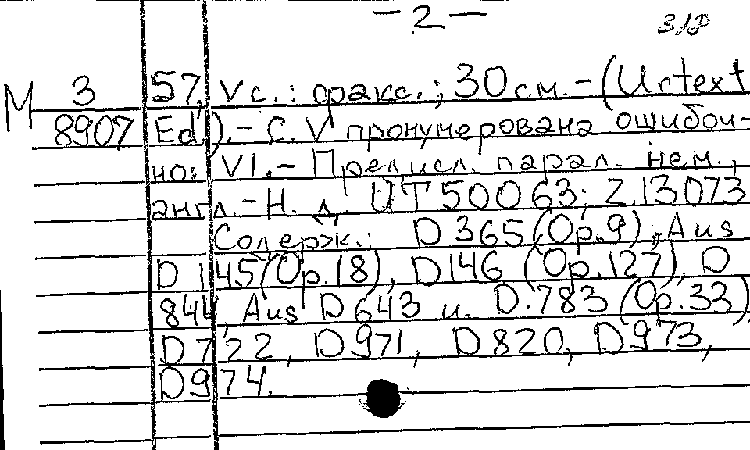 — 2 —
М 3 57, V с. : факс. ; 30 см. – (Urtext
8907 Ed.). – С. V пронумерована ошибоч-
но: VI. – Предисл. парал. нем.,
англ. – Н. д. UT 50063; Z.13073
Содерж.: D 365 (Op.9), Aus
D 145 (Op.18), D 146 (Op.127), D
844, Aus D 643 и D.783 (Op.33)
D 722, D 971, D 820, D 973,
D 974.